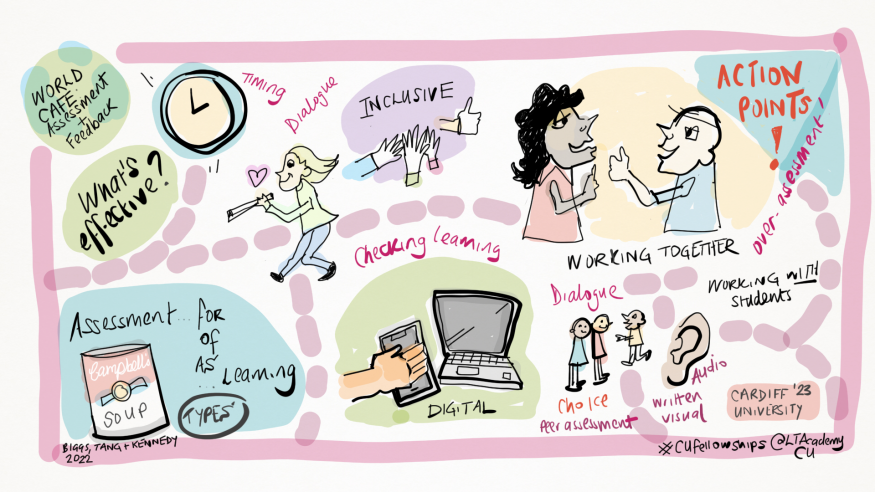 WORLD
CAFE:
Assessment
+
Feedback
TIMING
Dialogue
INCLUSIVE
ACTION
POINTS
!
over-assessment!
What's
effective?
Checking learning
WORKING TOGETHER
WORKING WITH
students
Assessment... FOR
OF
AS
... Learning
Campbell's
SOUP
TYPES
BIGGS, TANG + KENNEDY
2022
DIGITAL
Dialogue
Choice
Peer assessment
Audio
written
visual
CARDIFF '23
UNIVERSITY
#CUfellowships @LTAcademy
CU